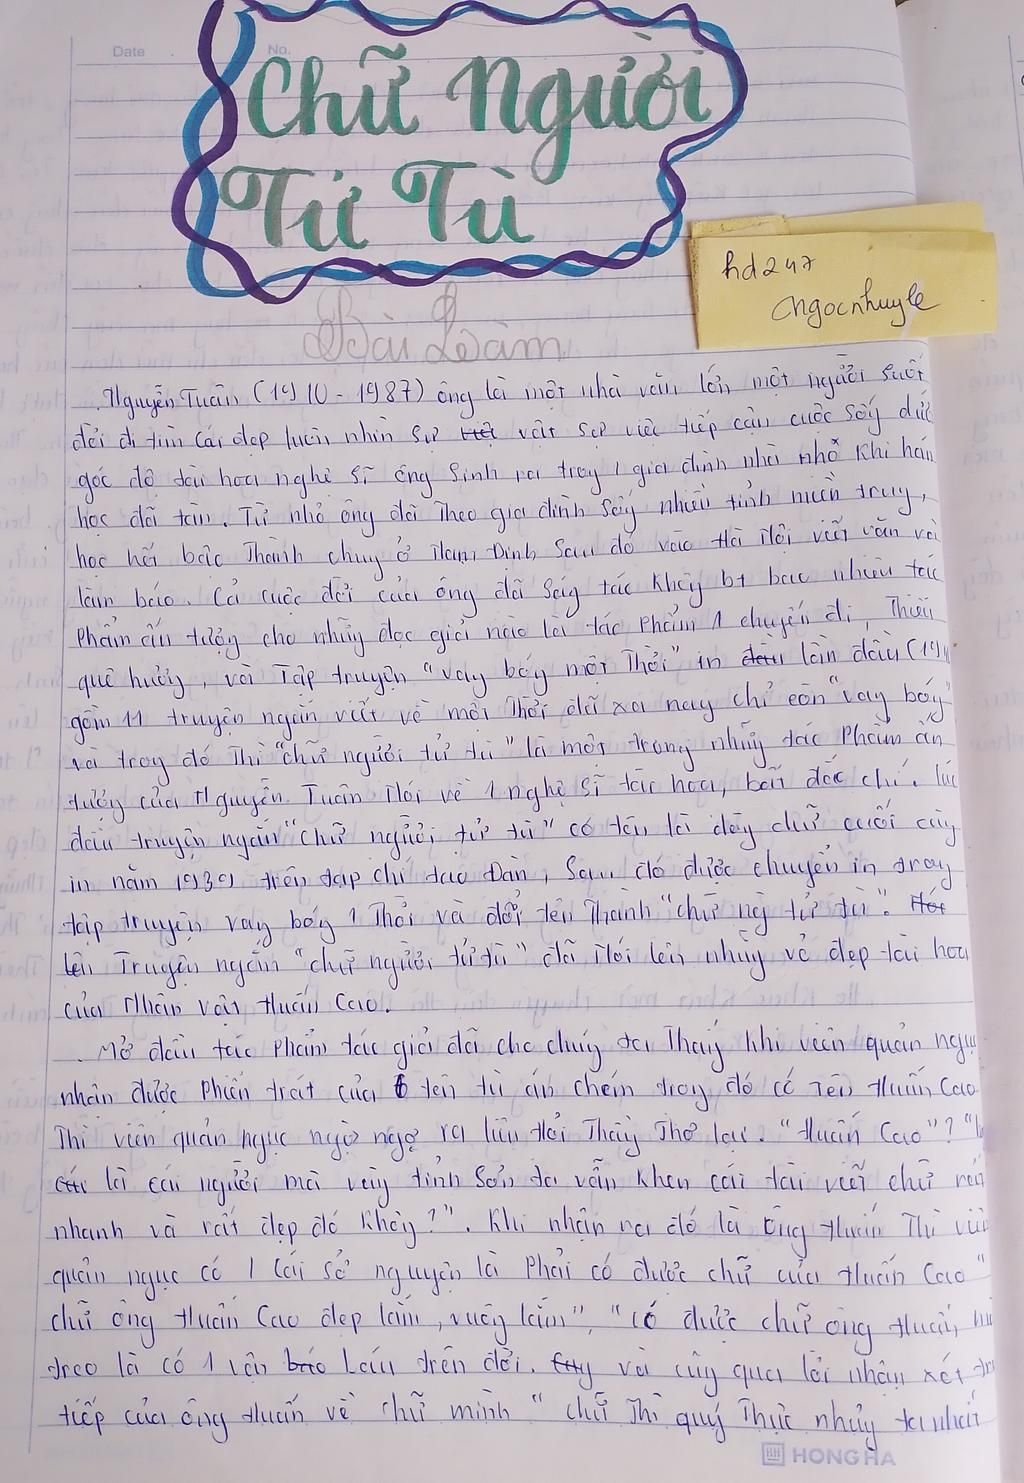 Date No.
Chữ Người
Tử Tù
hd247
Ngocnhuyle
Bài Làm
Nguyễn Tuân (1910 - 1987) ông là một nhà văn lớn một người suốt
đời đi tìm cái đẹp luôn nhìn sự vật sự việc tiếp cận cuộc sống dưới
góc độ tài hoa nghệ sĩ ông sinh ra trog 1 gia đình nhà nhở khi hán
học đã tàn. Từ nhỏ ông đã theo gia đình sốg nhiều tỉnh miền trug,
học hết bậc thành chug ở Nam Định sau đó vào Hà Nội viết văn và
làm báo. Cả cuộc đời của ông đã ság tác khôg bt bao nhiêu tác
phẩm ấn tượg cho nhữg đọc giả nào là tác phẩm 1 chuyến đi, Thiếu
quê hươg, và Tập truyện "vag bóg một thời" in lần đầu (19
gồm 11 truyện ngắn viết về một thời đã xa nay chỉ còn "vag bóg"
và trog đó thì "chữ người tử tù" là một trong nhữg tác phẩm ấn
tượg của Nguyễn Tuân Nói về 1 nghệ sĩ tài hoa, bất đắc chí. lúc
đầu truyện ngắn "chữ người tử tù" có tên là dòg chữ cuối cùg
in năm 1939 trên tạp chí tao Đàn, sau đó được chuyển in trog
tập truyện vag bóg 1 thời và đổi tên thành "chữ ng tử tù".
lên Truyện ngắn "chữ người tử tù" đã Nói lên nhữg vẻ đẹp tài hoa
của Nhân vật Huấn Cao.
Mở đầu tác phẩm tác giả đã cho chúg ta thấy khi viên quản ngục
nhận được phiến trát của 6 tên tù án chém trog đó có tên Huấn Cao
Thì viên quản ngục ngờ ngợ ra liền Hỏi Thầy Thơ lại. "Huấn Cao"? "
là cái người mà vùg tỉnh Sơn ta vẫn khen cái tài viết chữ rất
nhanh và rất đẹp đó khôg?". Khi nhận ra đó là ông Huấn Thì viên
quản ngục có 1 cái sở nguyện là phải có được chữ của Huấn Cao "
chữ ông Huấn Cao đẹp lắm, vuôg lắm", "có được chữ ông Huấn mà
treo là có 1 vật báu trên đời. và cũg qua lời nhận xét
tiếp của ông Huấn về chữ mình "chữ Thì quý Thực nhưg ta nhất
HONG HA